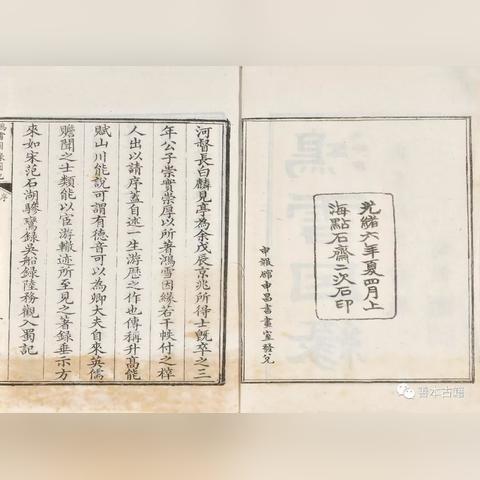 光緒六年夏四月上
海點石齋二次石印
申報館申昌書畫室發兌
河督長白麟見亭為余戊辰京兆所得士既卒之三
年公子崇實崇厚以所著鴻雪因緣若干帙付之梓
人出以請序蓋自述一生游歷之作也傳稱升高能
賦山川能說可謂有德音可以為卿大夫自來英儒
贍聞之士類能以宦游轍迹所至見之著錄垂示方
來如宋范石湖驂鸞錄吳船錄陸務觀入蜀記
鴻雪因緣圖記
序
善本古籍